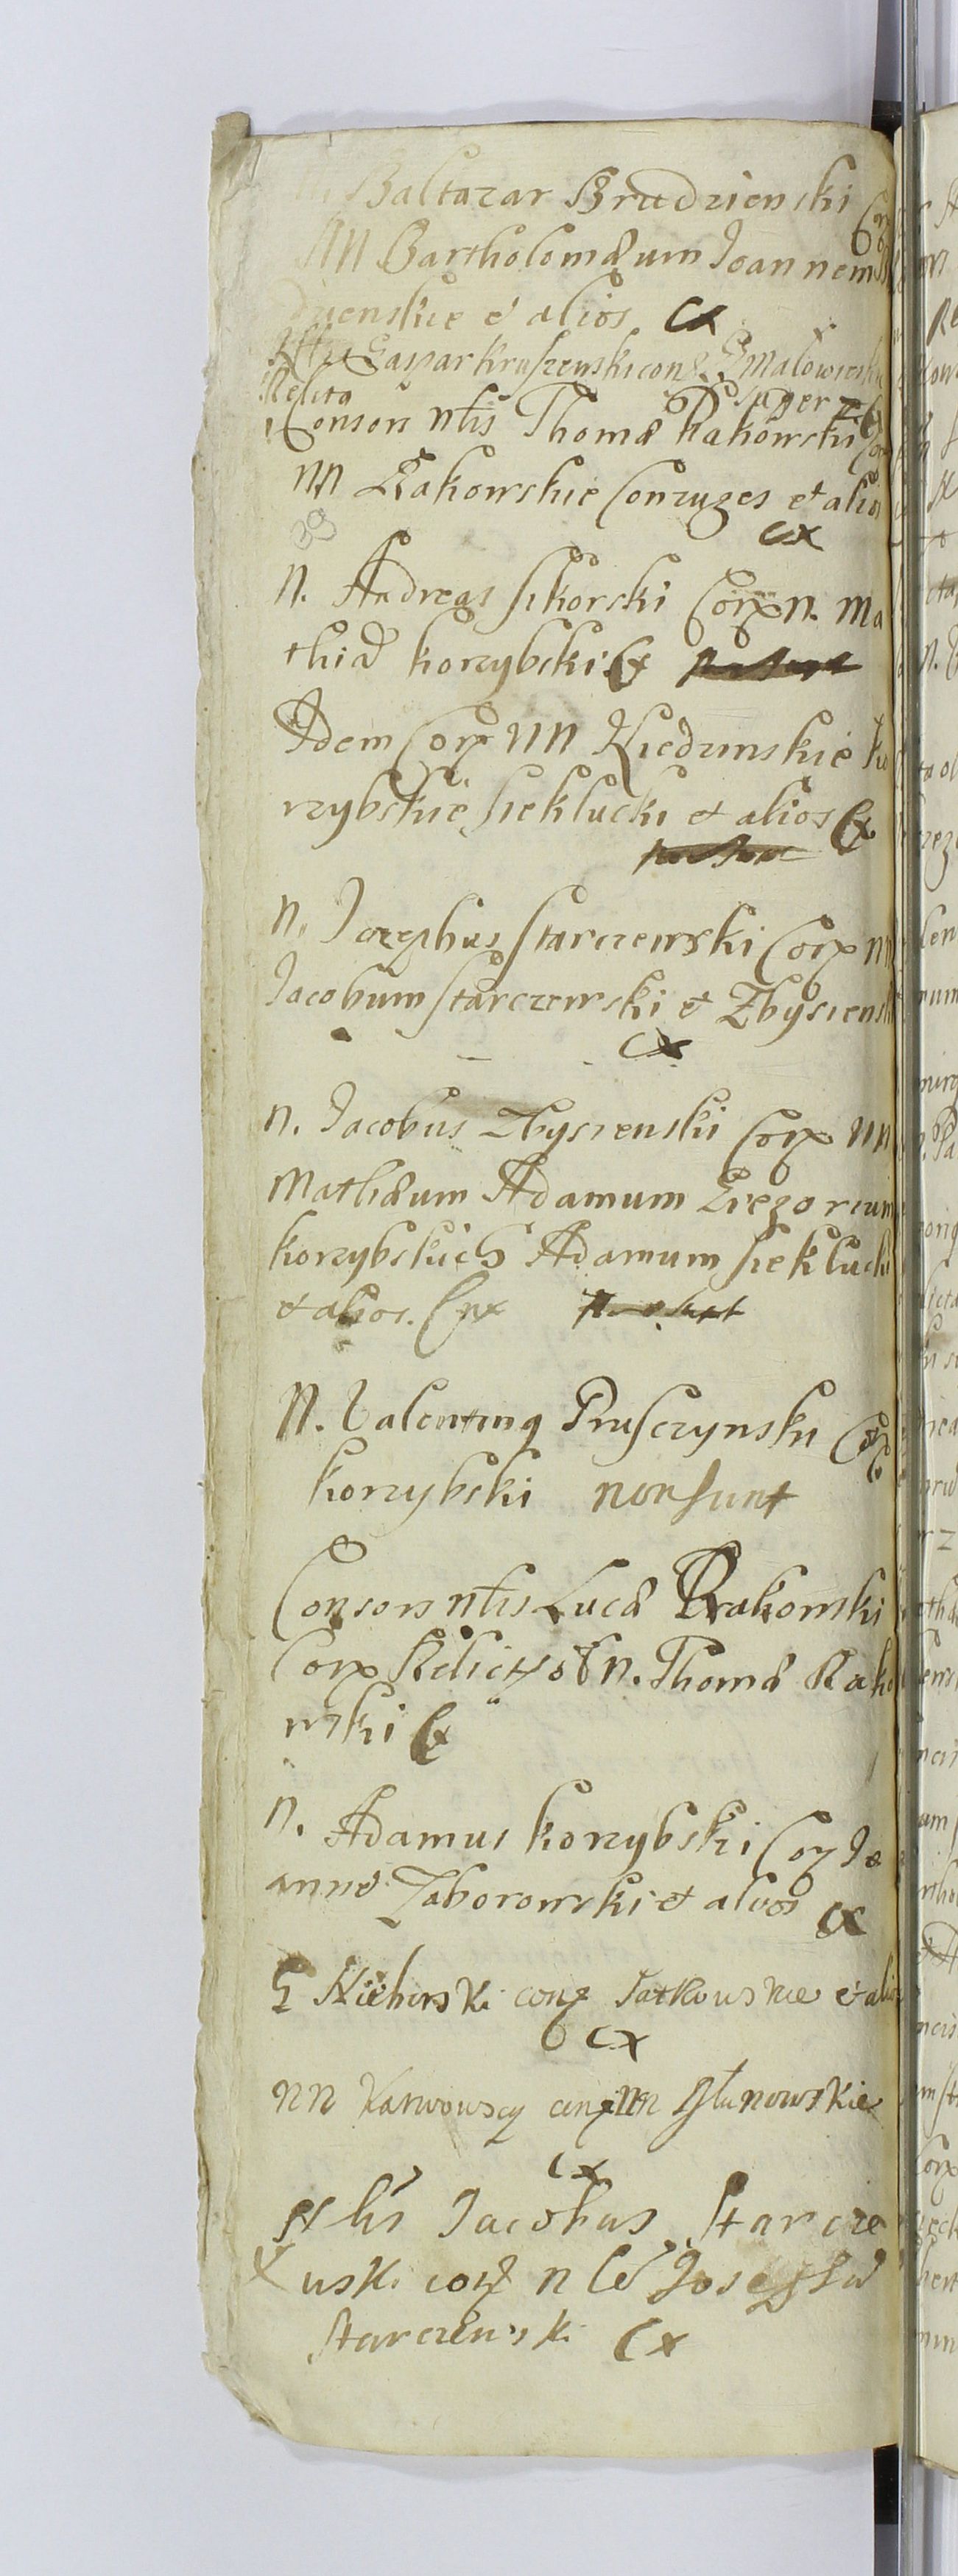 Baltazar Brudzienski
NN Bartholomæum Joannem
dzienskie et alios Cx
Gaspar Kraszenski con Malowiesk
Relicta super
Consors nlis Thomæ Rakowski
NN Rakowskie Conzuges et alios
Cx
N. Andreas Sikorski Corx n. Ma
thiæ korzybski Cx
Idem Corx NN Niedzinskie ko
rzybskie sieklucki et alios Cx
N. Jozephus Starczewski Corx NN
Jacobum Starczewski et Zbysiensk
Cx
N. Jacobus Zbysienski Corx NN
Mathæum Adamum Gregorium
korzybskich Adamum siekluck
et alios. Cx
N. Valentinq Pruszynski
korzybski non sunt
Consors nlis Lucæ Rakowski
Corx Relictæ n. Thomæ Rako
wski Cx
N. Adamus korzybski Cor Jo
anne Zaborowski et alios Cx
G Nieborski conz Jatkowskie et ali
Cx
NN Karwowscy conz NN
Cx
Nlis Jacobus Starcze
wski conz n Josephū
Starczewski Cx